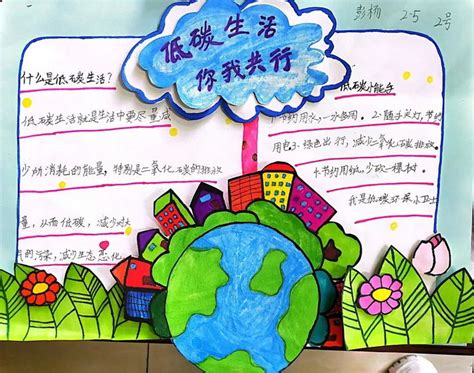 彭杨 2-5 2号
低碳生活
你我共行
什么是低碳生活?
低碳生活就是生活中要尽量减
少所消耗的能量,特别是二氧化碳的排放
量,从而低碳,减少对大
的污染,减少生态恶化
低碳小能手
1.节约用水,一水多用。2.随手关灯,节约
用电3.绿色出行,减少二氧化碳排放。
4.节约用纸,少砍一棵树。
我是低碳环保小卫士